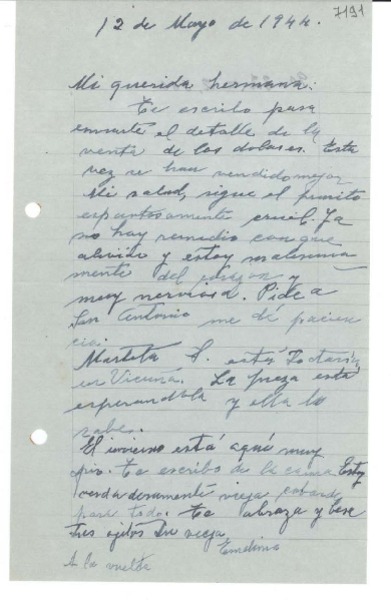 7191
12 de Mayo de 1944.
Mi querida hermana:
Te escribo para
enviarte el detalle de la
venta de los dolares. Esta
vez se han vendido mejor
Mi salud, sigue el prurito
espantosamente cruel. Ya
no hay remedio con que
aliviar y estoy
mente del y
muy nerviosa. Pide a
San Antonio me dé pacien
cia.
Marteta A. está Todavía
en Vicuña. La esta
esperandola y ella lo
sabe.
El invierno está aquí muy
frio. Te escribo de la cama Estoy
verdaderamente vieja
para todo. Te abraza y besa
tres ojitos tu vieja
Emelina
A la vuelta